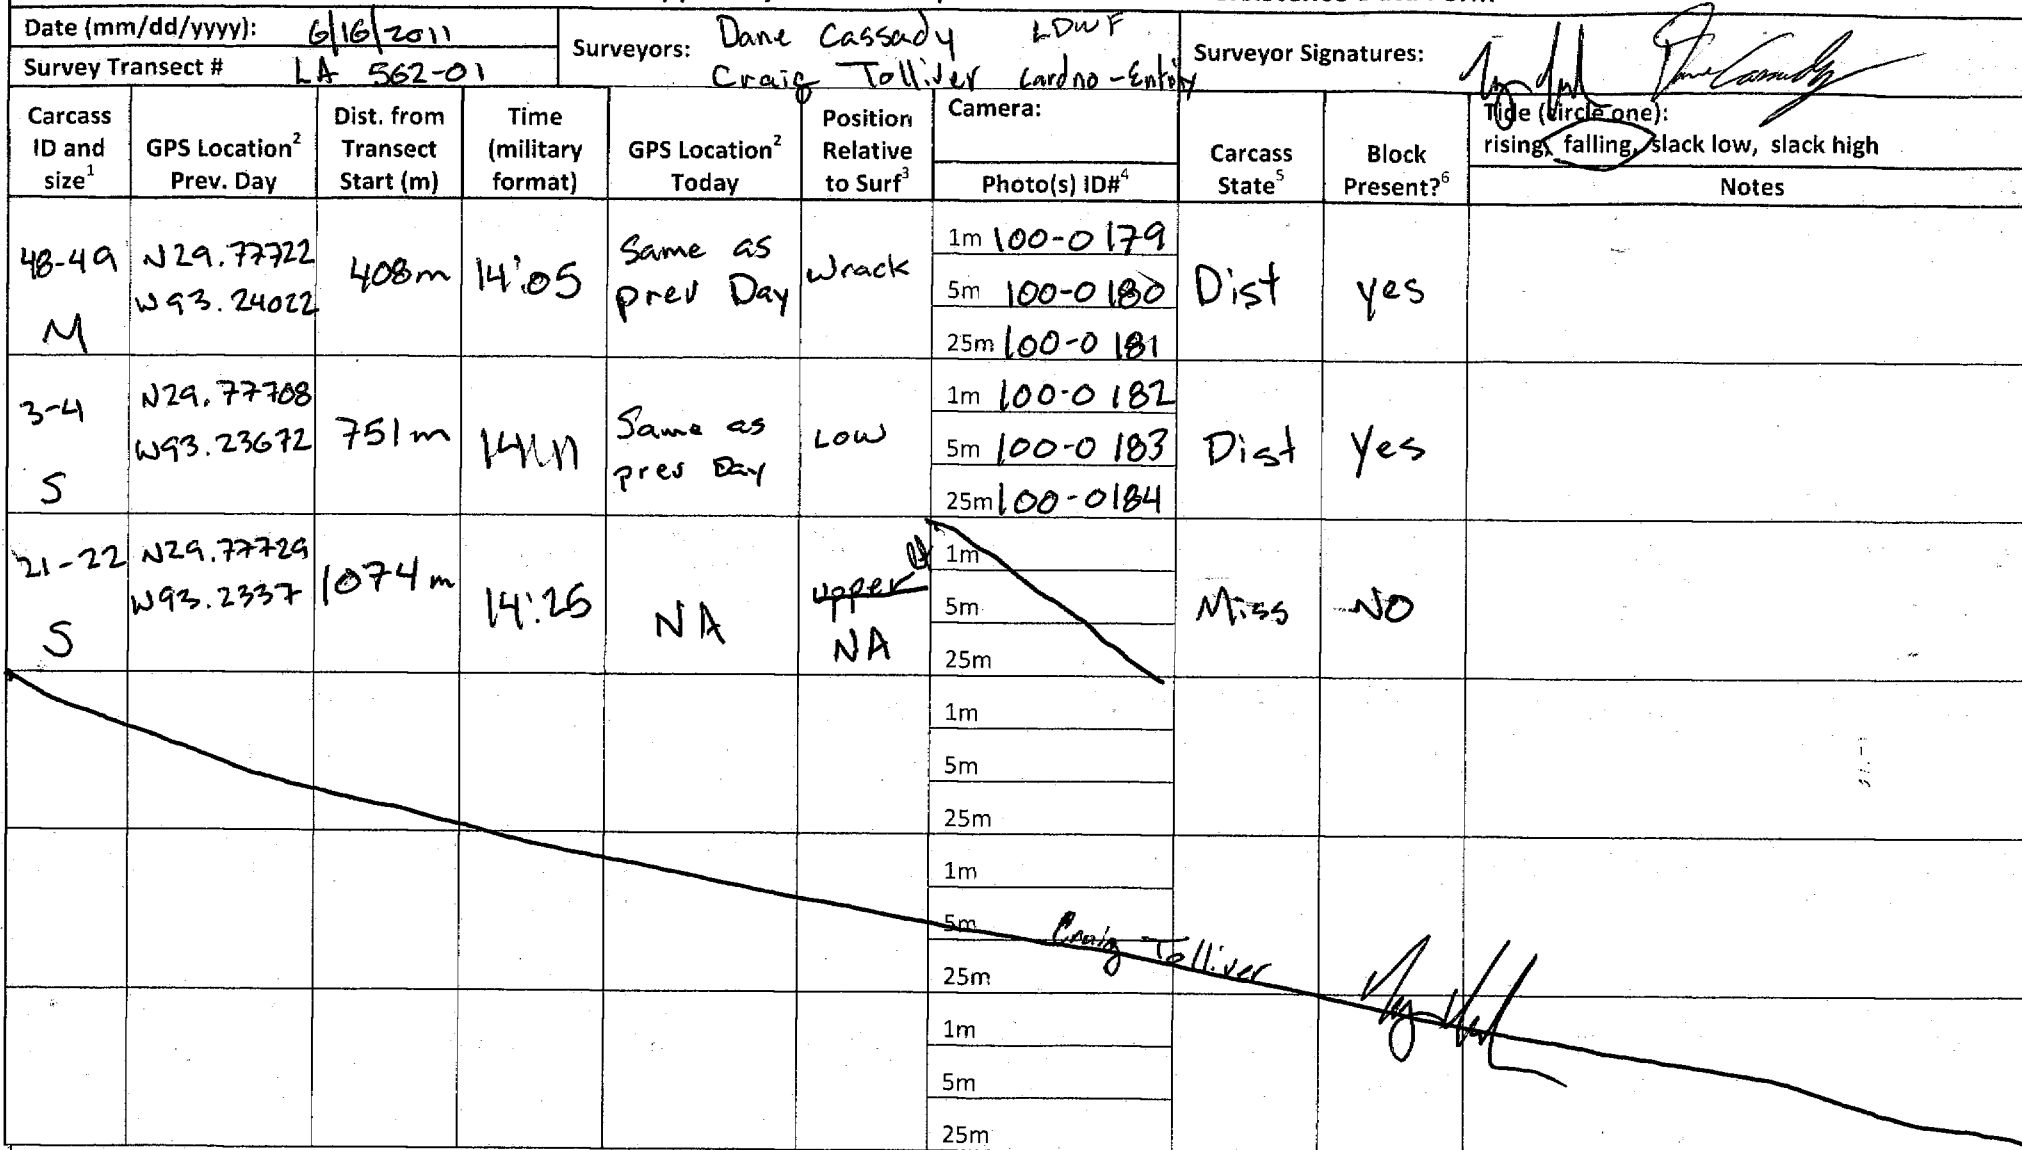 Date (mm/dd/yyyy): 6/16/2011
Survey Transect # LA 562-01
Surveyors: Dane Cassady LDWF
Craig Tolliver Cardno-Entrix
Surveyor Signatures:
Carcass ID and size1
GPS Location2 Prev. Day
Dist. from Transect Start (m)
Time (military format)
GPS Location2 Today
Position Relative to Surf3
Camera:
Photo(s) ID#4
Carcass State5
Block Present?6
Tide (circle one):
rising, falling, slack low, slack high
Notes
48-49
M
N29.77722
W93.24022
408m
14:05
Same as
prev Day
Wrack
1m 100-0179
5m 100-0180
25m 100-0181
Dist
yes
3-4
S
N29.77708
W93.23672
751m
Same as
prev Day
Low
1m 100-0182
5m 100-0183
25m 100-0184
Dist
Yes
21-22
S
N29.77729
W93.2337
1074m
14:25
NA
upper
NA
1m
5m
25m
Miss
NO
1m
5m
25m
1m
5m
25m
Craig Tolliver
1m
5m
25m